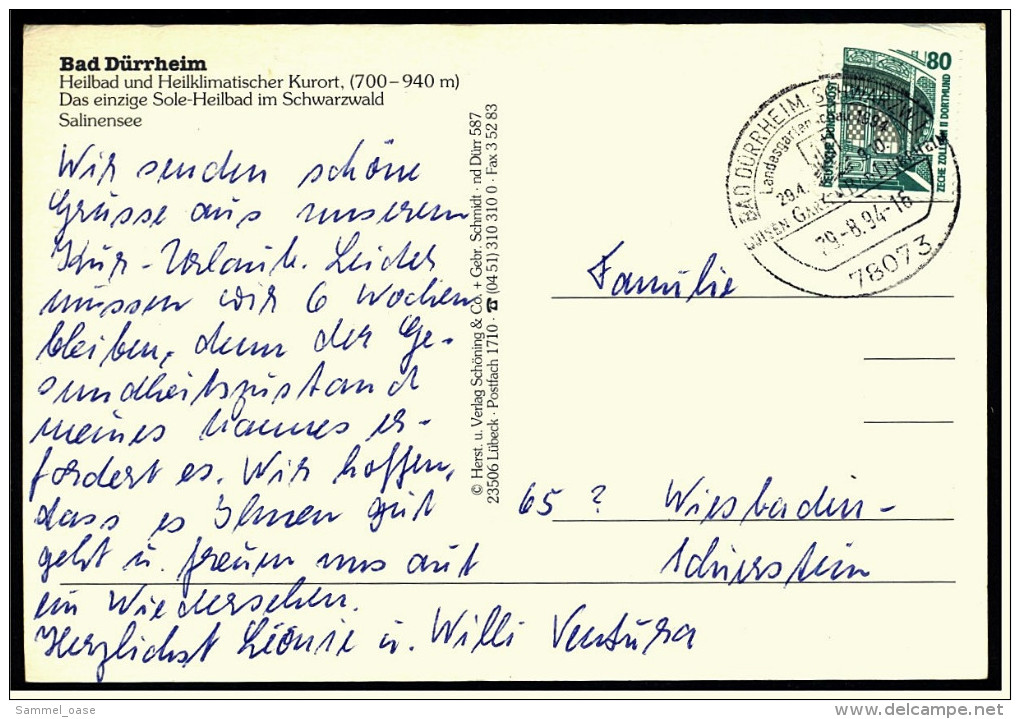 Bad Dürrheim
Heilbad und Heilklimatischer Kurort, (700–940 m)
Das einzige Sole-Heilbad im Schwarzwald
Salinensee
Wir senden schöne
Grüsse aus unserem
Kur-Urlaub. Leider
müssen wir 6 Wochen
bleiben, denn der Ge-
sundheitszustand
meines Mannes er-
fordert es. Wir hoffen,
dass es Ihnen gut
geht u. freuen uns auf
ein Wiedersehen.
Herzlichst Leonie u. Willi Ventura
© Herst. u. Verlag Schöning & Co. + Gebr. Schmidt · nd Dürr 587
23506 Lübeck · Postfach 1710 · ☎ (04 51) 310 310 0 · Fax 3 52 83
80
DEUTSCHE BUNDESPOST
ZECHE ZOLLERN II DORTMUND
BAD DÜRRHEIM, SCHWARZW
Landesgartenschau 1994
29.4.
9.10.
BAD DÜRRHEIM
29.-8.94-16
78073
Familie
65 ? Wiesbaden-
Schierstein
Sammel_oase